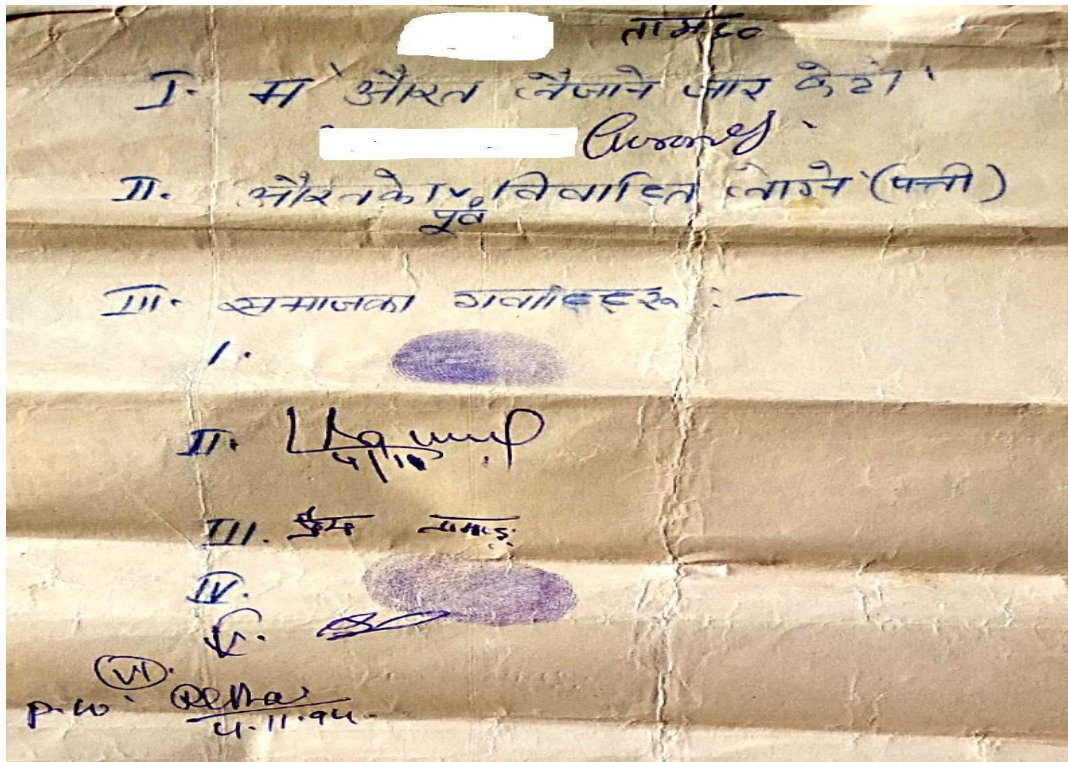 तामाङ
I. म औरत लैजाने जार केटो
II. औरतको पूर्व विवाहित लोग्ने (पत्नी)
III. समाजका गवाहिहरू :—
I.
II.
4/11
III. तामाङ
IV.
V.
VI.
P.W.
4.11.94.